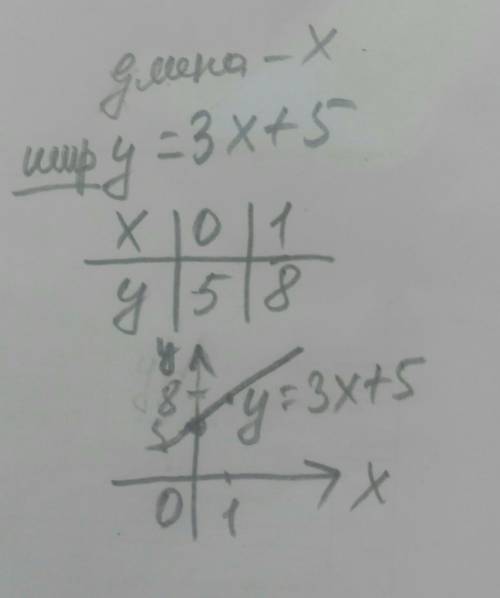 длина – x
шир y = 3x+5
x | 0 | 1
y | 5 | 8
y
8 y=3x+5
5
0 1 x